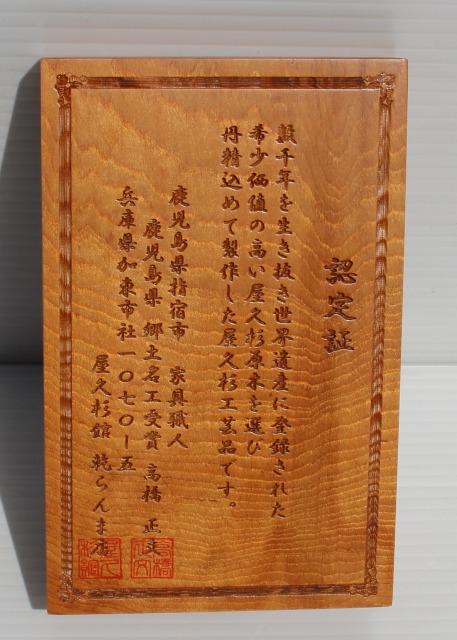 認定証
数千年を生き抜き世界遺産に登録された
希少価値の高い屋久杉原木を選び
丹精込めて製作した屋久杉工芸品です。
鹿児島県指宿市 家具職人
鹿児島県郷土名工受賞 高橋 正文
兵庫県加東市社一〇七〇ー五
屋久杉館 乾らんま店